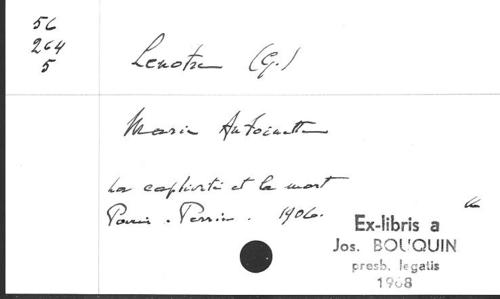 56
264
5
Lenotre (G.)
Marie Antoinette
La captivité et la mort
Paris. Perrin. 1906.
Ex-libris a
Jos. BOUQUIN
presb. legatis
1968